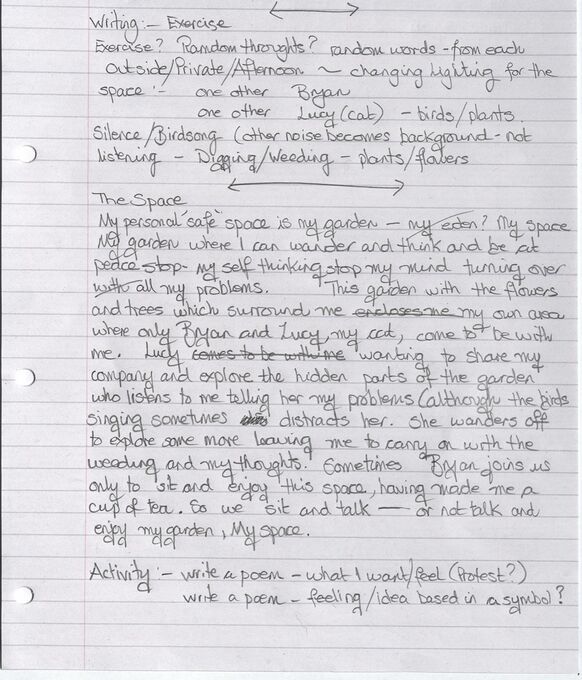 Writing:- Exercise
Exercise? Random thoughts? random words - from each
Outside/Private/Afternoon ~ changing lighting for the
space :- one other Bryan
one other Lucy (cat) - birds/plants.
Silence/Birdsong (other noise becomes background - not
listening - Digging/Weeding - plants/flowers
The Space
My personal "safe" space is my garden - my eden? My space
My garden where I can wander and think and be at
peace stop- my self thinking stop my mind turning over
with all my problems. This garden with the flowers
and trees which surround me encloses me my own area
where only Bryan and Lucy, my cat, come to be with
me. Lucy comes to be with me wanting to share my
company and explore the hidden parts of the garden
who listens to me telling her my problems (although the birds
singing sometimes distracts her. She wanders off
to explore some more leaving me to carry on with the
weeding and my thoughts. Sometimes Bryan joins us
only to sit and enjoy this space, having made me a
cup of tea. So we sit and talk — or not talk and
enjoy my garden, My space.
Activity :- write a poem - what I want/feel (Protest?)
write a poem - feeling/idea based in a symbol?